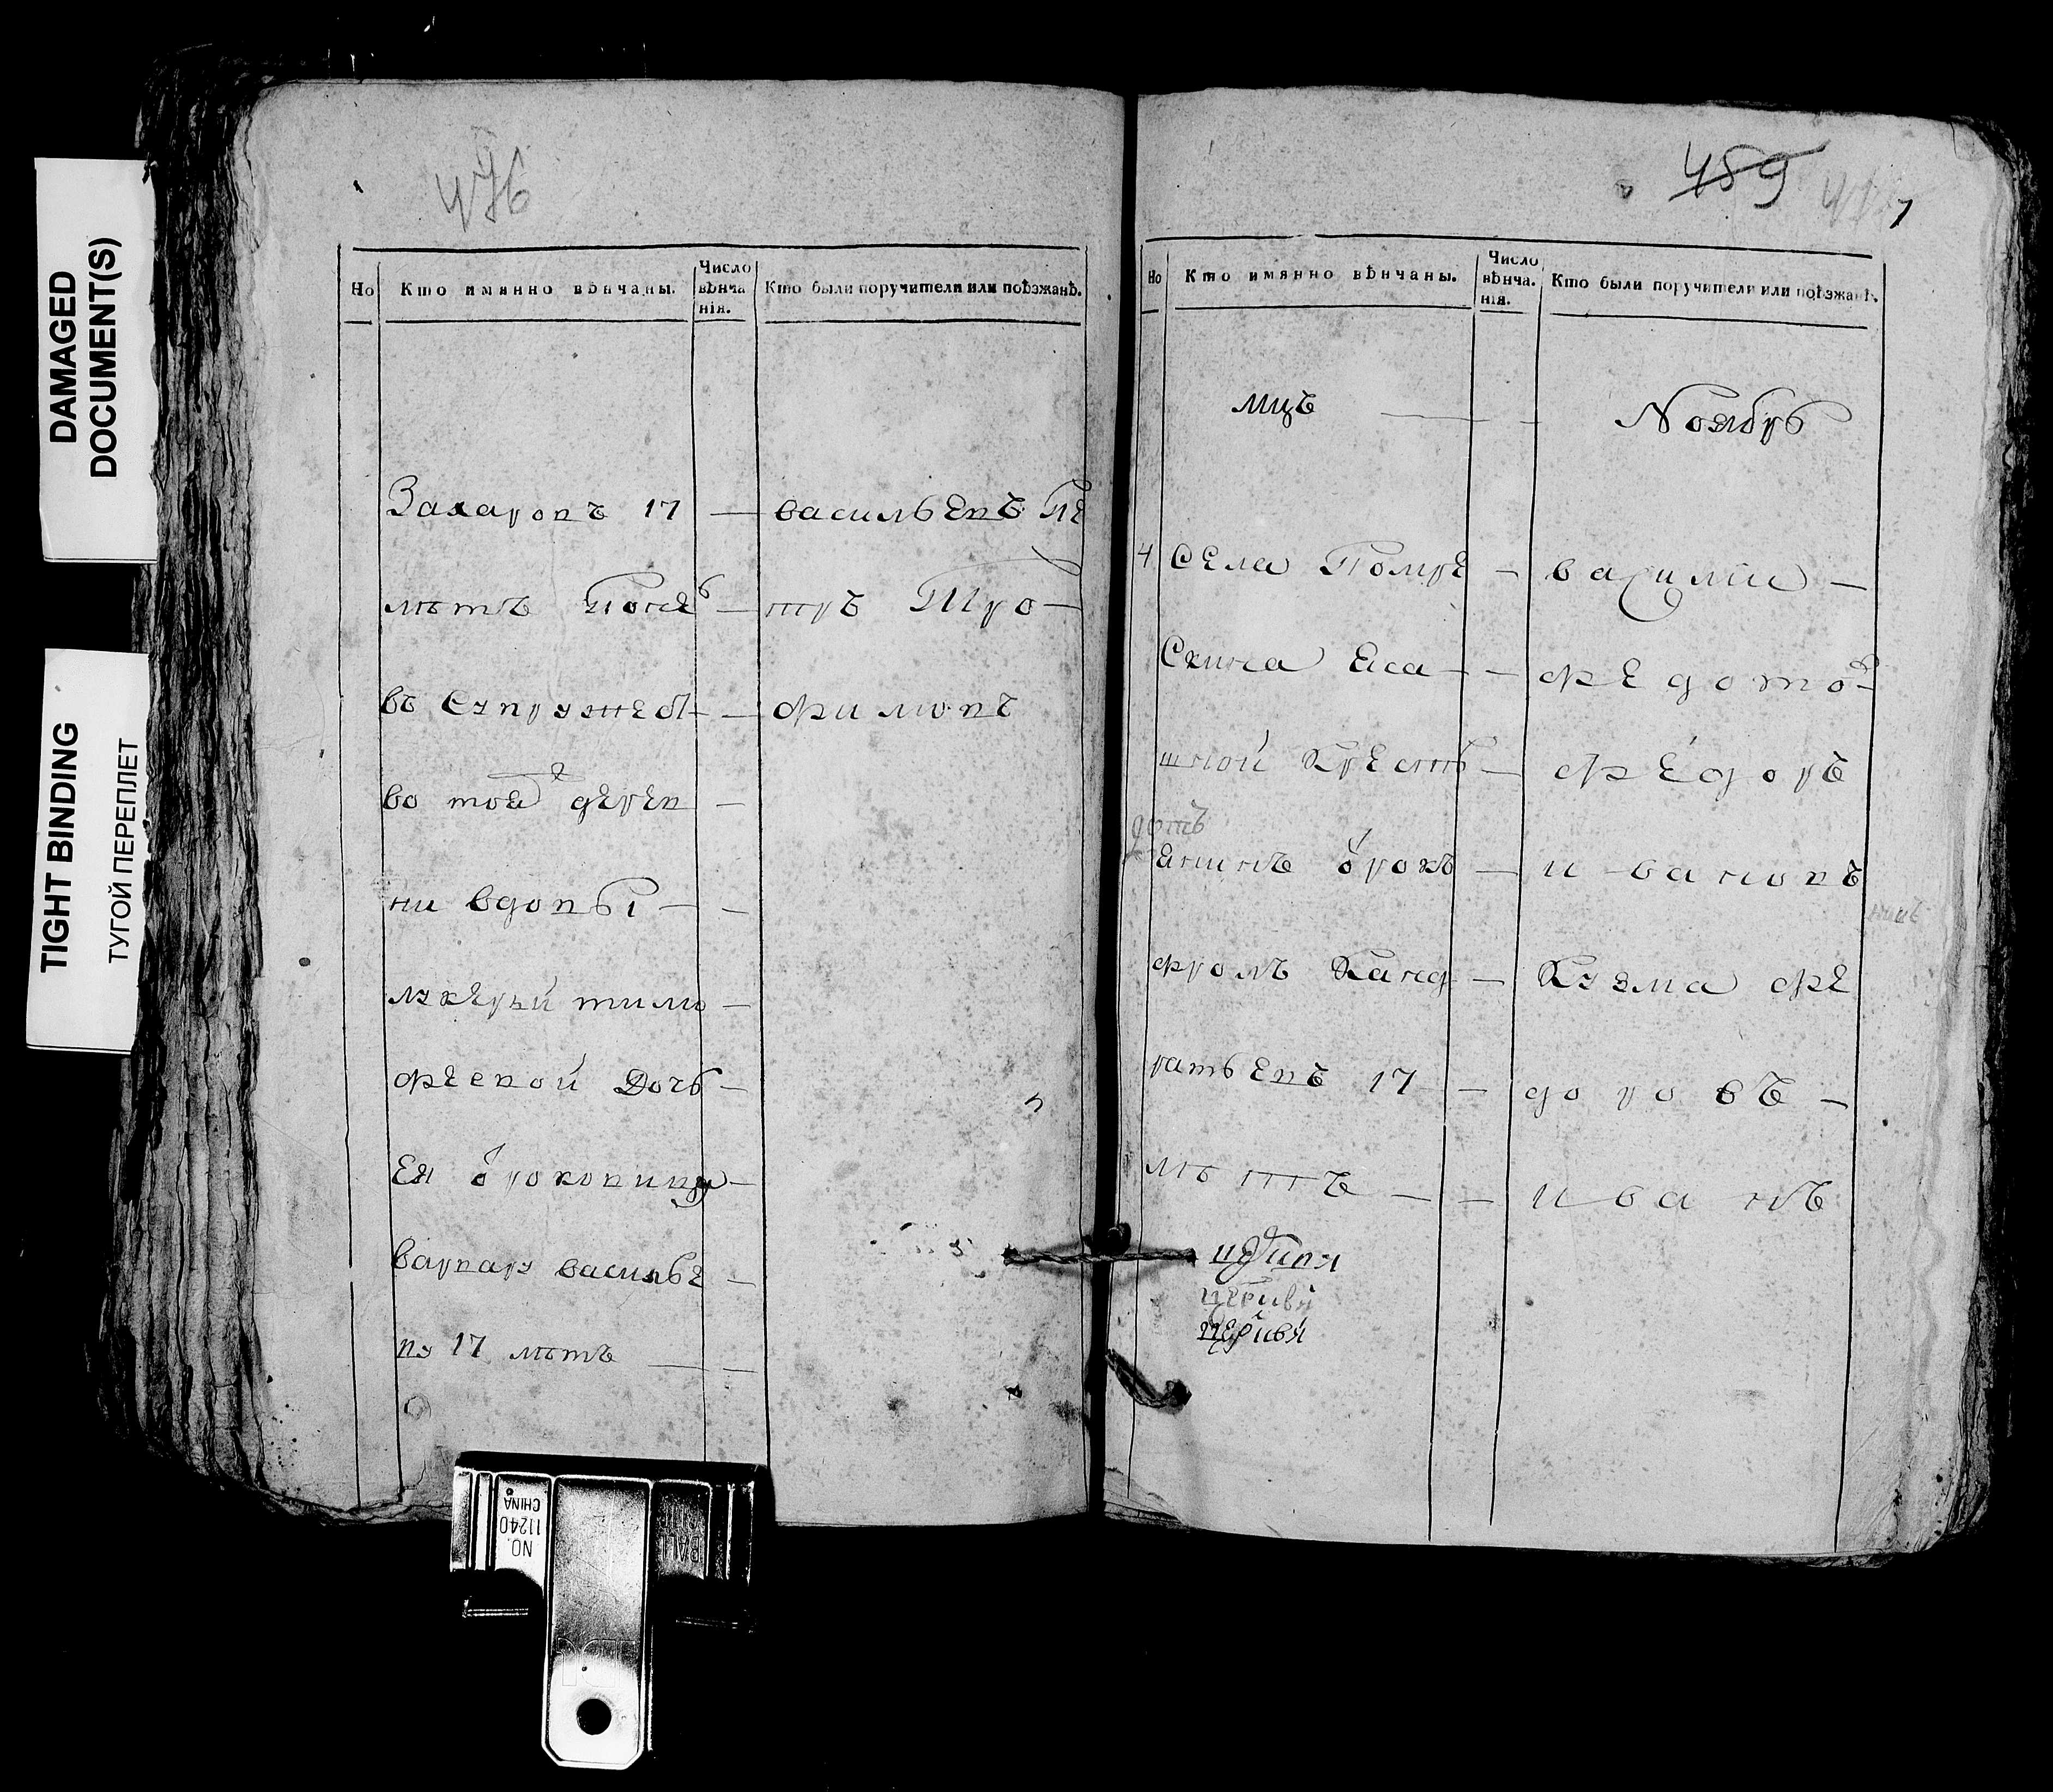 DAMAGED
DOCUMENT(S)
TIGHT BINDING
ТУГОЙ ПЕРЕПЛЕТ
476
Но
Кто имянно вѣнчаны.
Число
вѣнча
нія.
Кто были поручители или поѣзжанѣ.
Захаровъ 17 — васильевъ Пе
лѣтъ Понев — тръ Тро —
въ Супружест — — фимовъ
во тоя дерев —
ни вдовы — —
лукерьи тимо —
феевой Дочь —
ея отроковицу —
варвару василье —
ву 17 лѣтъ — —
489
Но
Кто имянно вѣнчаны.
Число
вѣнча.
нія.
Кто были поручители или поѣзжанѣ.
мцъ — — Ноябрь
4 Села Помре — василии —
Скина Еса — — федотов
шной Крестъ — федоръ
янинъ отрокъ — ивановъ
фролъ Канд — Кузма фе
ратьевъ 17 — доровъ —
лѣтъ — — иванъ
NO.
11240
CHINA